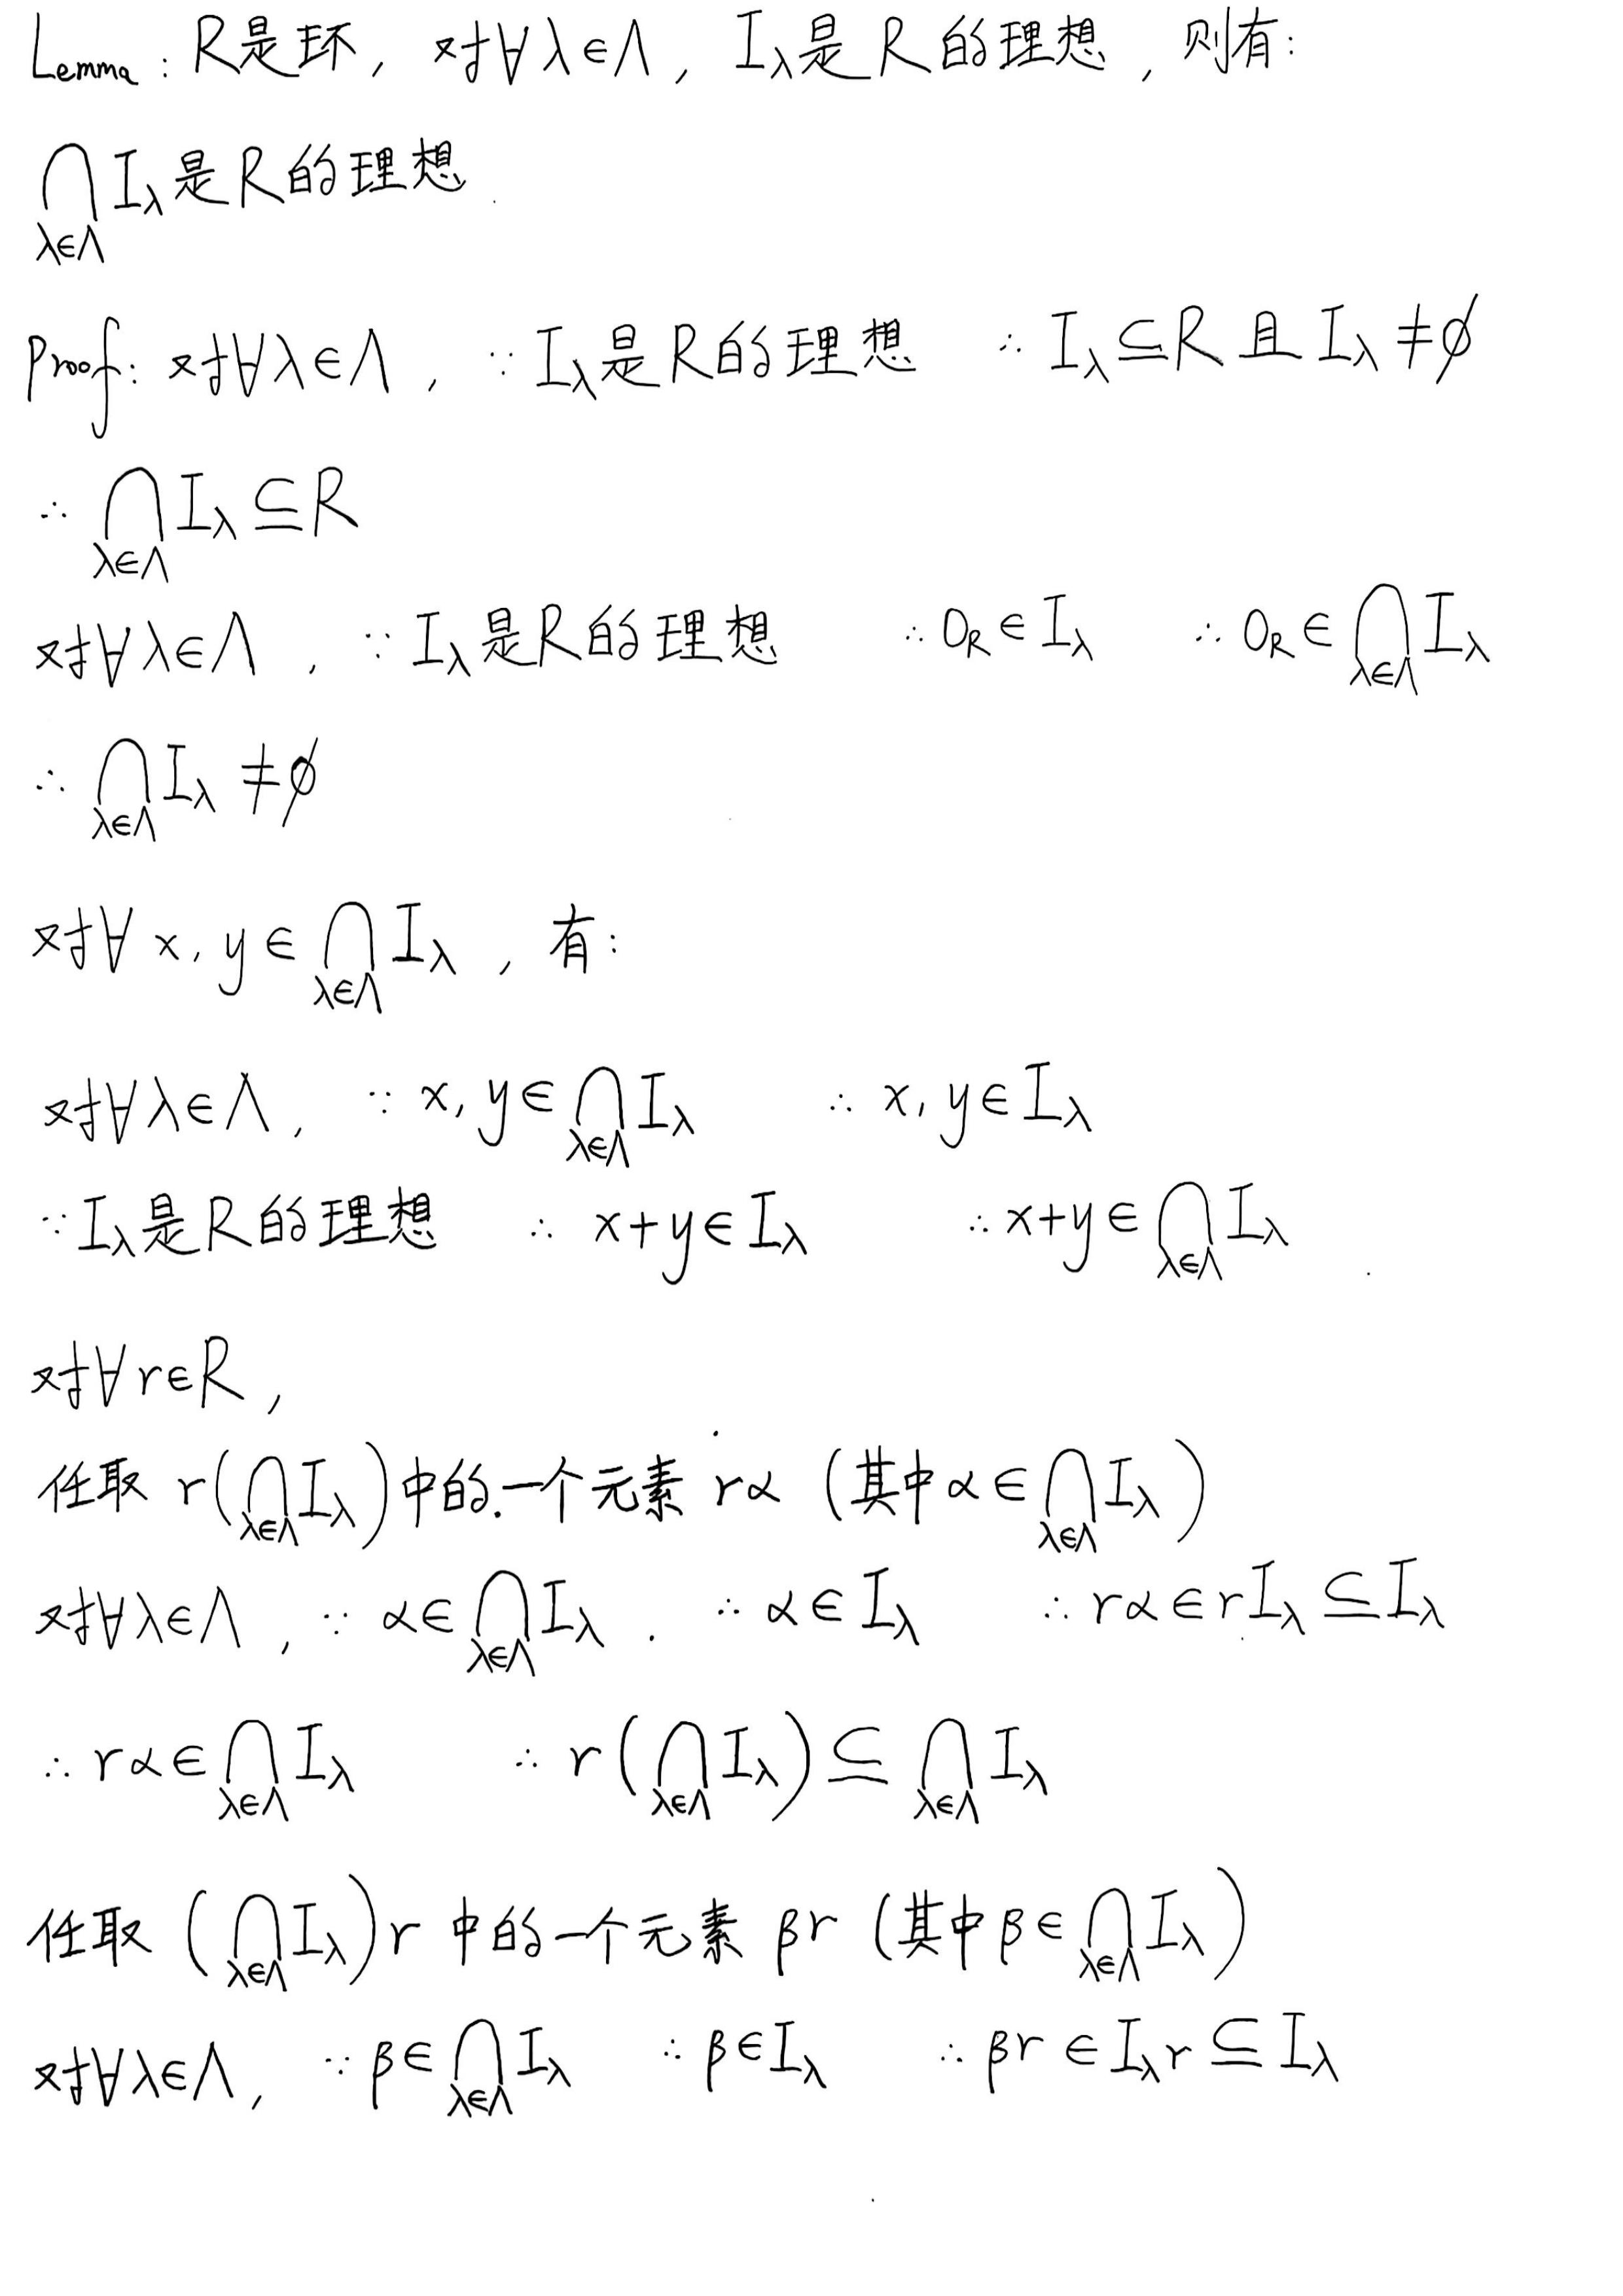 Lemma: R是环, 对∀λ∈Λ, I_λ是R的理想, 则有:
⋂_{λ∈Λ} I_λ是R的理想.
Proof: 对∀λ∈Λ, ∵ I_λ是R的理想 ∴ I_λ⊆R 且 I_λ≠∅
∴ ⋂_{λ∈Λ} I_λ⊆R
对∀λ∈Λ, ∵ I_λ是R的理想 ∴ 0_R∈I_λ ∴ 0_R∈⋂_{λ∈Λ} I_λ
∴ ⋂_{λ∈Λ} I_λ≠∅
对∀x,y∈⋂_{λ∈Λ} I_λ, 有:
对∀λ∈Λ, ∵ x,y∈⋂_{λ∈Λ} I_λ ∴ x,y∈I_λ
∵ I_λ是R的理想 ∴ x+y∈I_λ ∴ x+y∈⋂_{λ∈Λ} I_λ.
对∀r∈R,
任取 r(⋂_{λ∈Λ} I_λ)中的一个元素 rα (其中α∈⋂_{λ∈Λ} I_λ)
对∀λ∈Λ, ∵ α∈⋂_{λ∈Λ} I_λ. ∴ α∈I_λ ∴ rα∈rI_λ⊆I_λ
∴ rα∈⋂_{λ∈Λ} I_λ ∴ r(⋂_{λ∈Λ} I_λ)⊆⋂_{λ∈Λ} I_λ
任取 (⋂_{λ∈Λ} I_λ)r 中的一个元素 βr (其中β∈⋂_{λ∈Λ} I_λ)
对∀λ∈Λ, ∵ β∈⋂_{λ∈Λ} I_λ ∴ β∈I_λ ∴ βr∈I_λr⊆I_λ